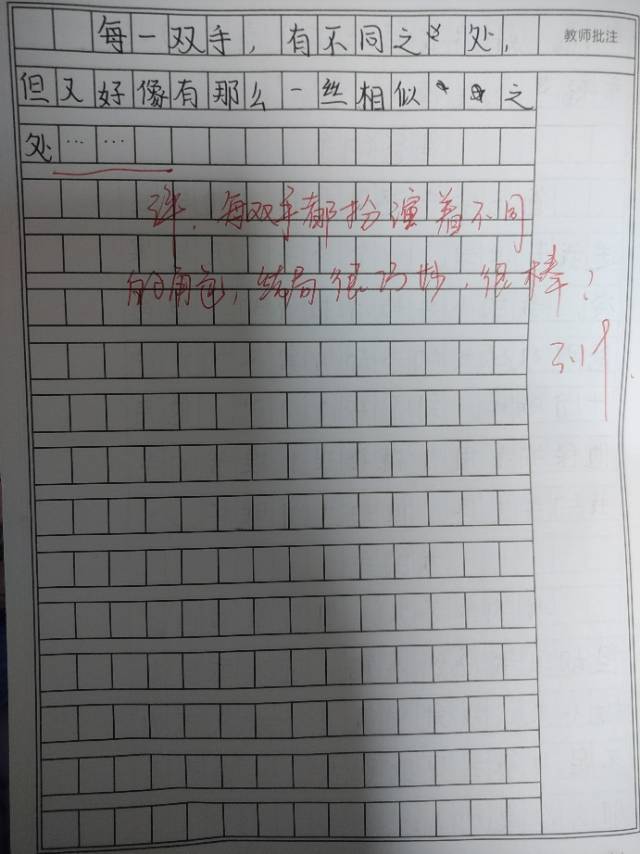 每一双手，有不同之处，
教师批注
但又好像有那么一丝相似之
处……
评：每双手都扮演着不同
的角色，结局很巧妙，很棒！